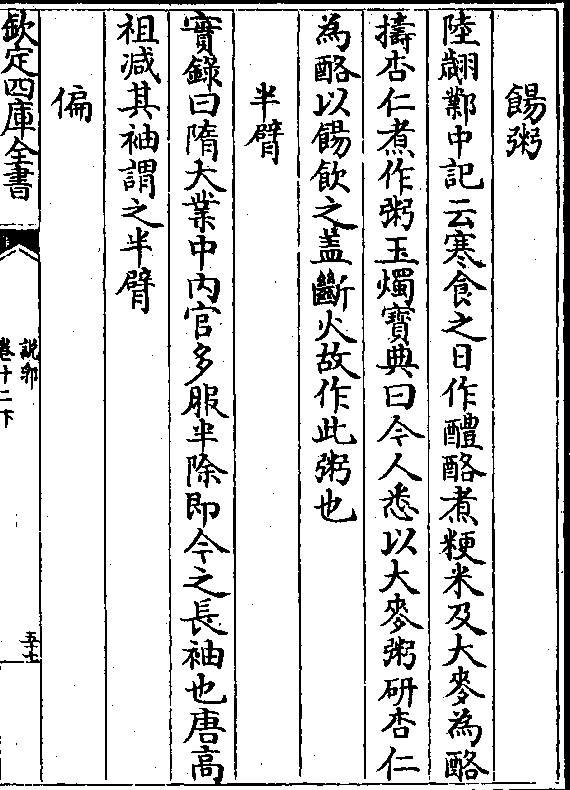 餳粥
陸翽鄴中記云寒食之日作醴酪煮粳米及大麥為酪
擣杏仁煮作粥玉燭寶典曰今人悉以大麥粥研杏仁
為酪以餳飲之盖斷火故作此粥也
半臂
實錄曰隋大業中內官多服半除即今之長袖也唐高
祖減其袖謂之半臂
偏
欽定四庫全書
說郛
卷十二下
五十七